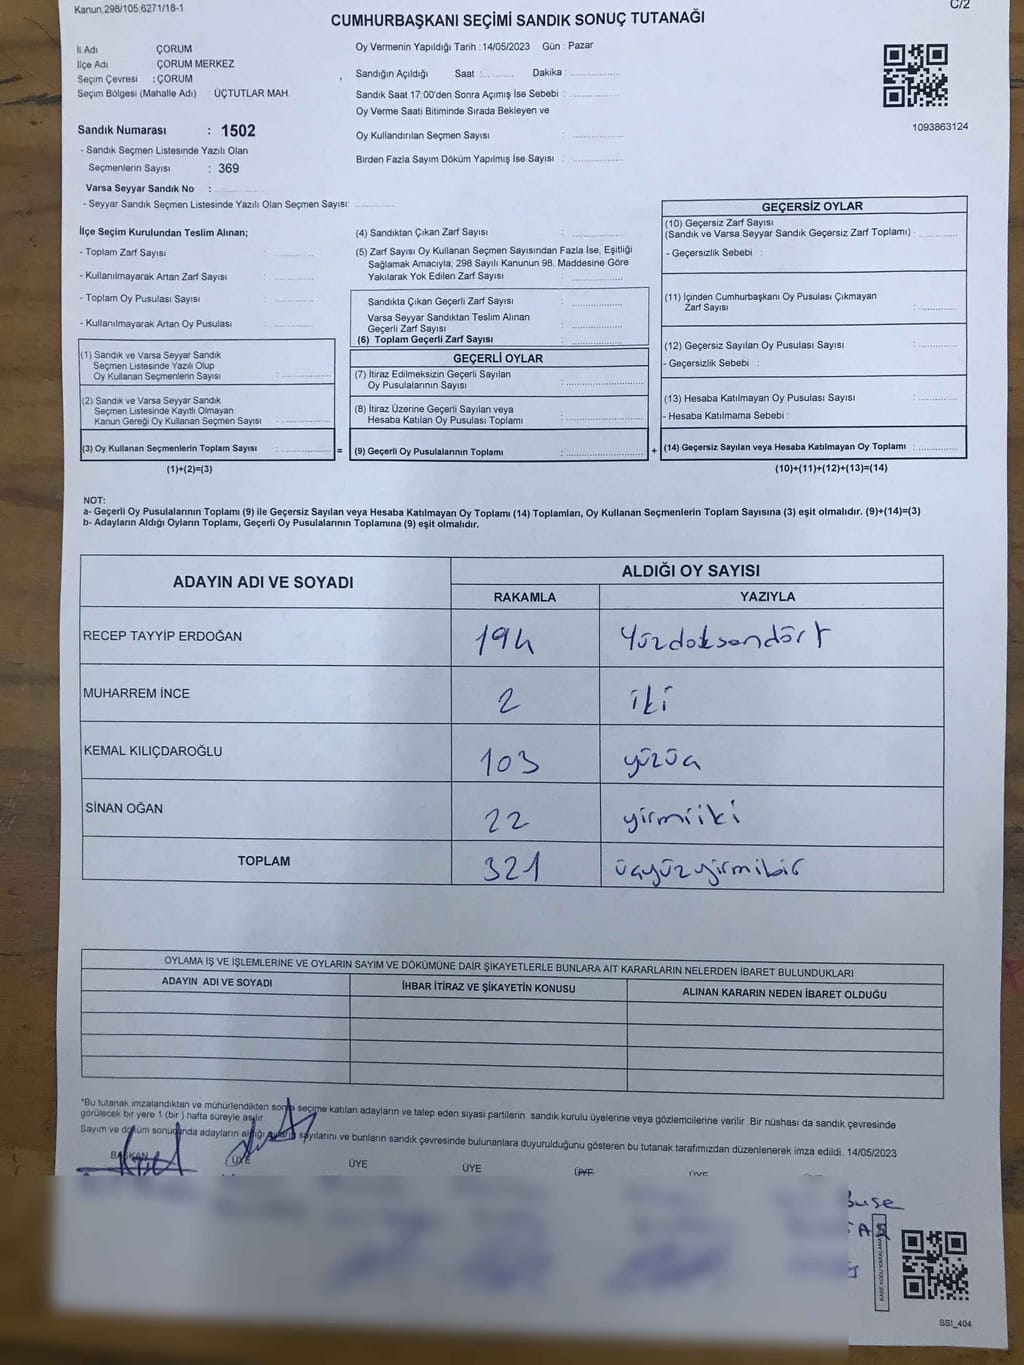 Kanun,298/105,6271/18-1
C/2
CUMHURBAŞKANI SEÇİMİ SANDIK SONUÇ TUTANAĞI
İl Adı ÇORUM
İlçe Adı ÇORUM MERKEZ
Seçim Çevresi : ÇORUM
Seçim Bölgesi (Mahalle Adı) : ÜÇTUTLAR MAH.
Sandık Numarası : 1502
- Sandık Seçmen Listesinde Yazılı Olan
Seçmenlerin Sayısı : 369
Varsa Seyyar Sandık No :
- Seyyar Sandık Seçmen Listesinde Yazılı Olan Seçmen Sayısı:
Oy Vermenin Yapıldığı Tarih : 14/05/2023 Gün : Pazar
Sandığın Açıldığı Saat : Dakika :
Sandık Saat 17:00'den Sonra Açımış İse Sebebi :
Oy Verme Saati Bitiminde Sırada Bekleyen ve
Oy Kullandırılan Seçmen Sayısı :
Birden Fazla Sayım Döküm Yapılmış İse Sayısı :
1093863124
İlçe Seçim Kurulundan Teslim Alınan;
- Toplam Zarf Sayısı :
- Kullanılmayarak Artan Zarf Sayısı :
- Toplam Oy Pusulası Sayısı :
- Kullanılmayarak Artan Oy Pusulası :
(1) Sandık ve Varsa Seyyar Sandık
Seçmen Listesinde Yazılı Olup
Oy Kullanan Seçmenlerin Sayısı :
(2) Sandık ve Varsa Seyyar Sandık
Seçmen Listesinde Kayıtlı Olmayan
Kanun Gereği Oy Kullanan Seçmen Sayısı :
(3) Oy Kullanan Seçmenlerin Toplam Sayısı :
(1)+(2)=(3)
=
(4) Sandıktan Çıkan Zarf Sayısı :
(5) Zarf Sayısı Oy Kullanan Seçmen Sayısından Fazla İse, Eşitliği
Sağlamak Amacıyla; 298 Sayılı Kanunun 98. Maddesine Göre
Yakılarak Yok Edilen Zarf Sayısı :
Sandıkta Çıkan Geçerli Zarf Sayısı :
Varsa Seyyar Sandıktan Teslim Alınan
Geçerli Zarf Sayısı :
(6) Toplam Geçerli Zarf Sayısı :
GEÇERLİ OYLAR
(7) İtiraz Edilmeksizin Geçerli Sayılan
Oy Pusulalarının Sayısı :
(8) İtiraz Üzerine Geçerli Sayılan veya
Hesaba Katılan Oy Pusulası Toplamı :
(9) Geçerli Oy Pusulalarının Toplamı :
+
GEÇERSİZ OYLAR
(10) Geçersiz Zarf Sayısı
(Sandık ve Varsa Seyyar Sandık Geçersiz Zarf Toplamı) :
- Geçersizlik Sebebi :
(11) İçinden Cumhurbaşkanı Oy Pusulası Çıkmayan
Zarf Sayısı :
(12) Geçersiz Sayılan Oy Pusulası Sayısı :
- Geçersizlik Sebebi :
(13) Hesaba Katılmayan Oy Pusulası Sayısı :
- Hesaba Katılmama Sebebi :
(14) Geçersiz Sayılan veya Hesaba Katılmayan Oy Toplamı :
(10)+(11)+(12)+(13)=(14)
NOT:
a- Geçerli Oy Pusulalarının Toplamı (9) ile Geçersiz Sayılan veya Hesaba Katılmayan Oy Toplamı (14) Toplamları, Oy Kullanan Seçmenlerin Toplam Sayısına (3) eşit olmalıdır. (9)+(14)=(3)
b- Adayların Aldığı Oyların Toplamı, Geçerli Oy Pusulalarının Toplamına (9) eşit olmalıdır.
ADAYIN ADI VE SOYADI
ALDIĞI OY SAYISI
RAKAMLA YAZIYLA
RECEP TAYYİP ERDOĞAN 194 Yüzdoksandört
MUHARREM İNCE 2 iki
KEMAL KILIÇDAROĞLU 103 yüzüç
SİNAN OĞAN 22 yirmiiki
TOPLAM 321 üçyüzyirmibir
OYLAMA İŞ VE İŞLEMLERİNE VE OYLARIN SAYIM VE DÖKÜMÜNE DAİR ŞİKAYETLERLE BUNLARA AİT KARARLARIN NELERDEN İBARET BULUNDUKLARI
ADAYIN ADI VE SOYADI İHBAR İTİRAZ VE ŞİKAYETİN KONUSU ALINAN KARARIN NEDEN İBARET OLDUĞU
*Bu tutanak imzalandıktan ve mühürlendikten sonra seçime katılan adayların ve talep eden siyasi partilerin sandık kurulu üyelerine veya gözlemcilerine verilir. Bir nüshası da sandık çevresinde
görülecek bir yere 1 (bir ) hafta süreyle asılır.
Sayım ve döküm sonucunda adayların aldığı oyların sayılarını ve bunların sandık çevresinde bulunanlara duyurulduğunu gösteren bu tutanak tarafımızdan düzenlenerek imza edildi. 14/05/2023
BAŞKAN ÜYE ÜYE ÜYE ÜYE ÜYE
Buse
SSI_404